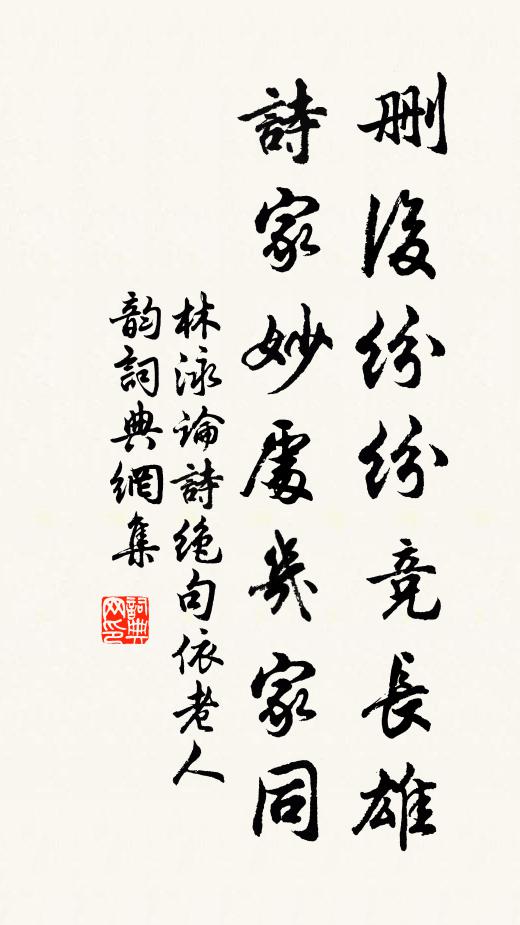 删後紛紛竞長雄
詩家妙處幾家同
林泳論詩絶句依老人
韵詞典網集
詞典网印